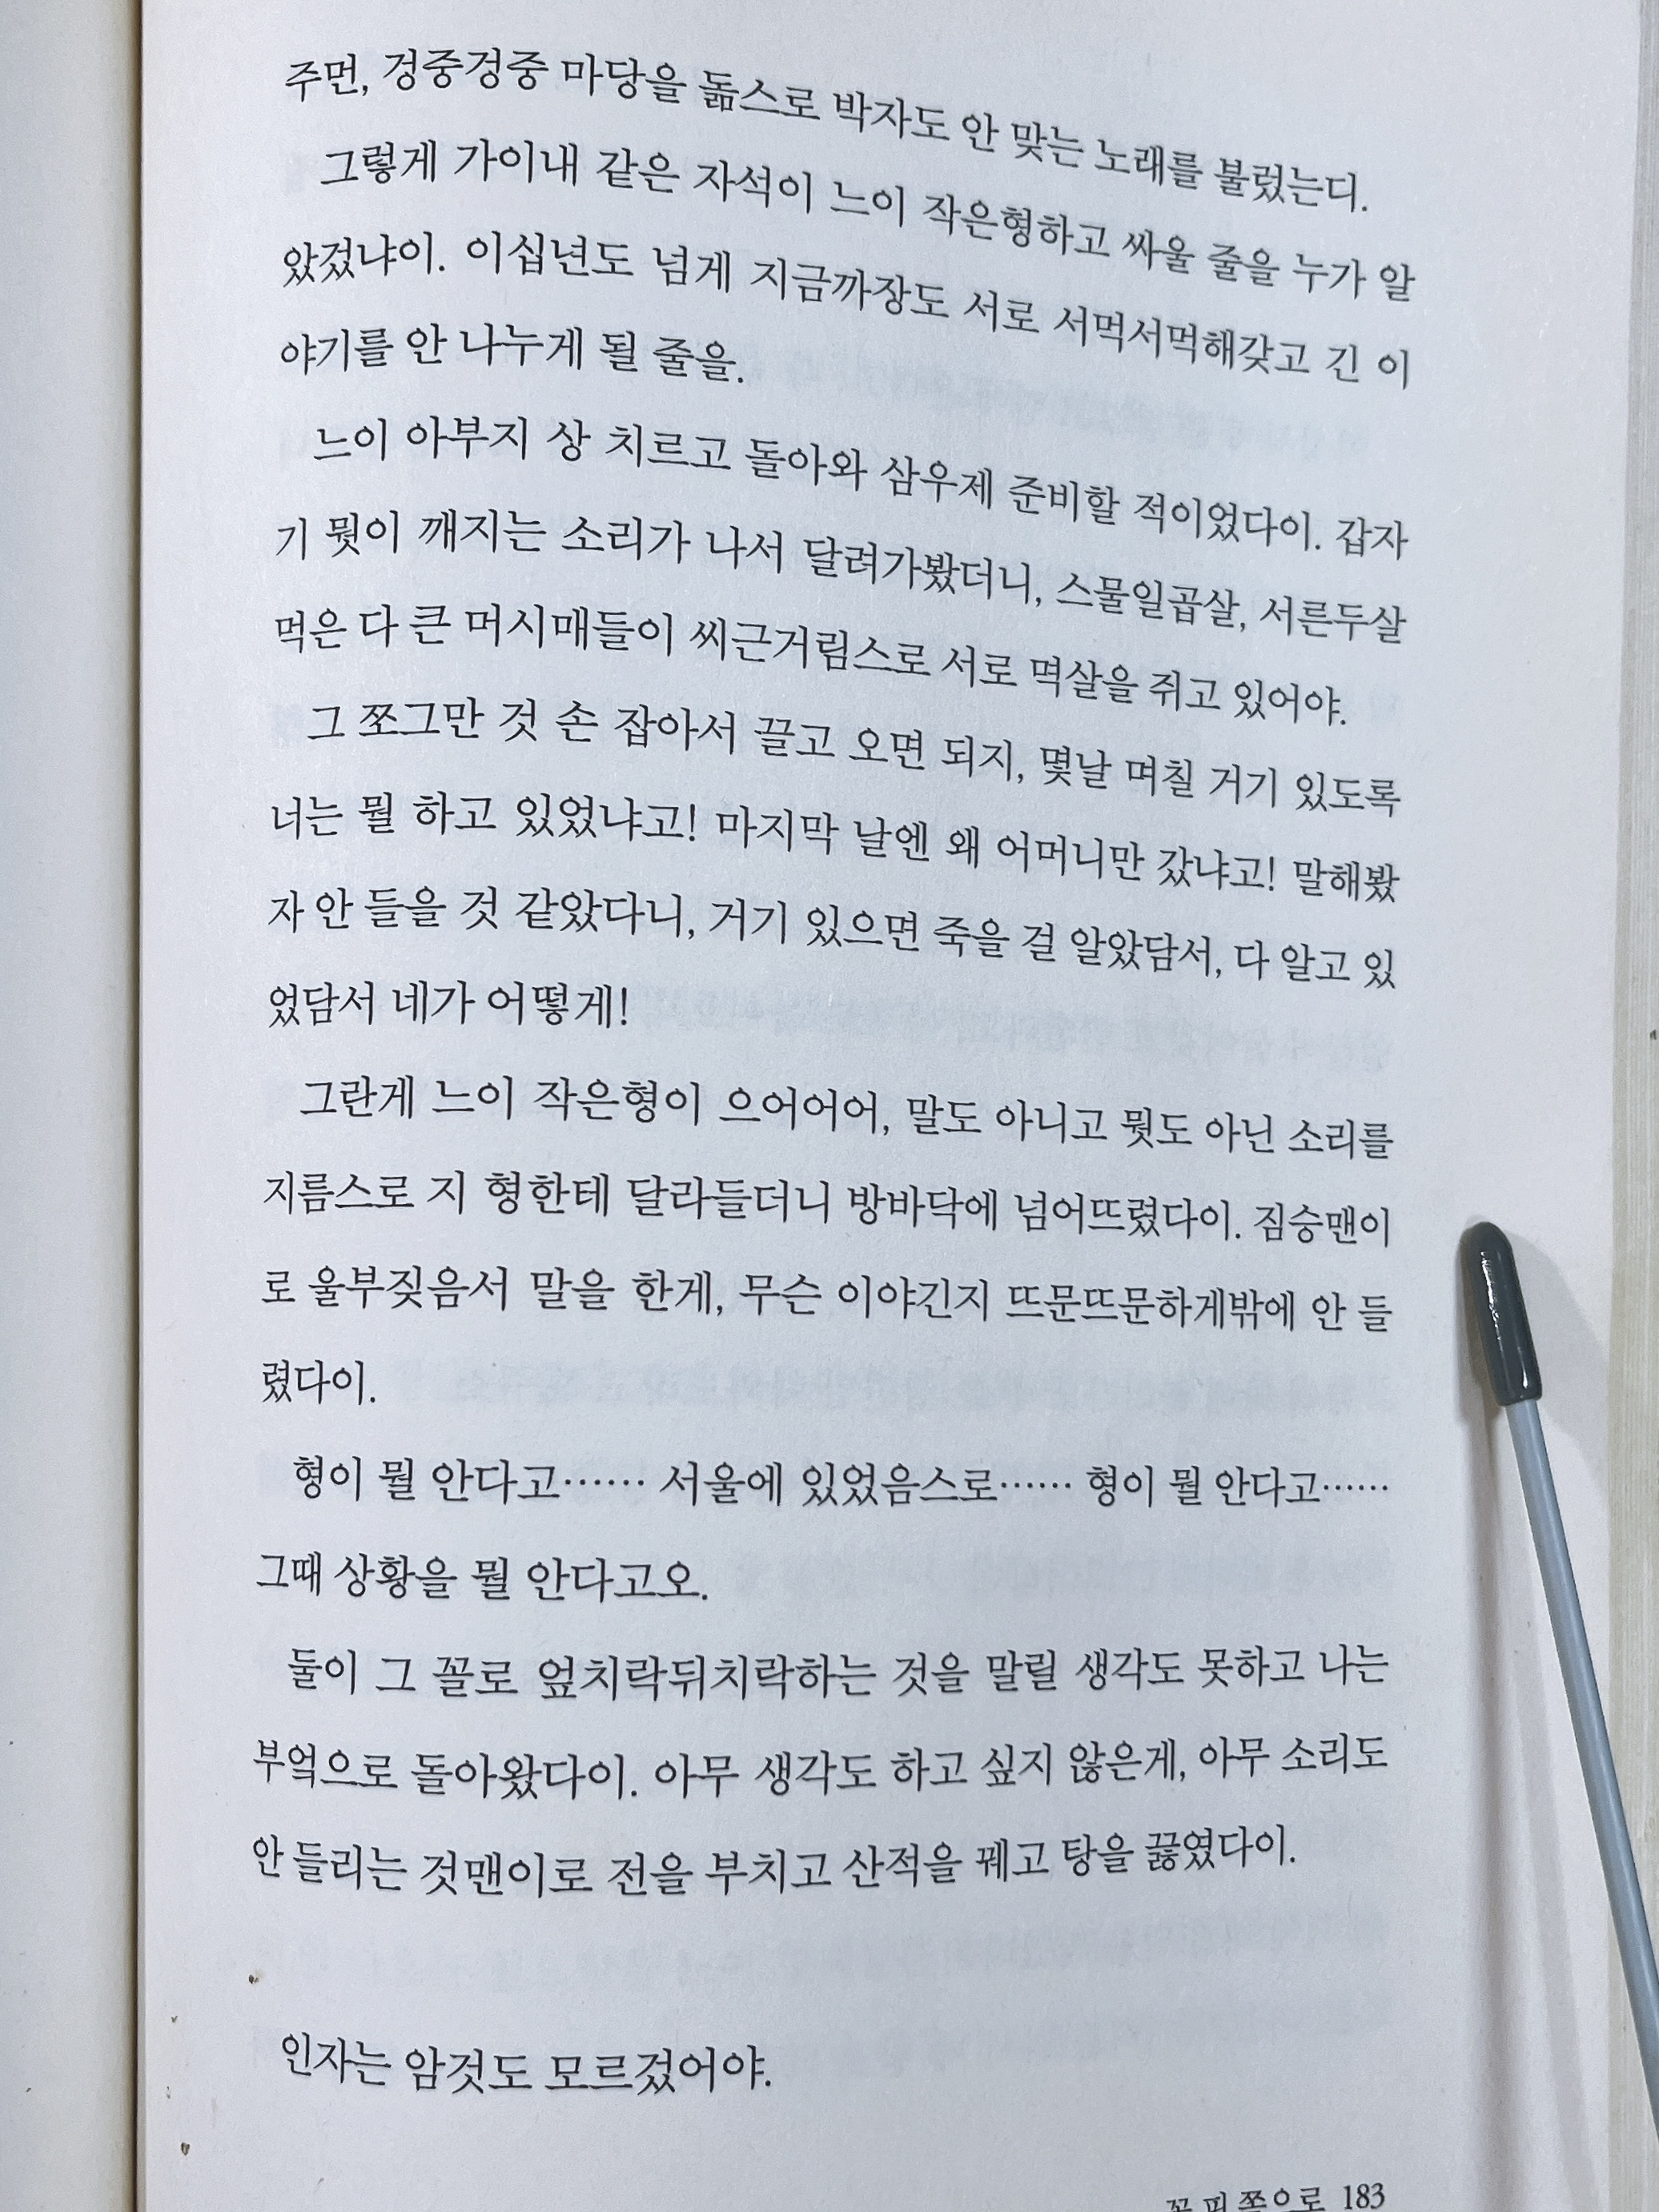 주먼, 겅중겅중 마당을 돎스로 박자도 안 맞는 노래를 불렀는디.
그렇게 가이내 같은 자석이 느이 작은형하고 싸울 줄을 누가 알
았겄냐이. 이십년도 넘게 지금까장도 서로 서먹서먹해갖고 긴 이
야기를 안 나누게 될 줄을.
느이 아부지 상 치르고 돌아와 삼우제 준비할 적이었다이. 갑자
기 뭣이 깨지는 소리가 나서 달려가봤더니, 스물일곱살, 서른두살
먹은 다 큰 머시매들이 씨근거림스로 서로 멱살을 쥐고 있어야.
그 쪼그만 것 손 잡아서 끌고 오면 되지, 몇날 며칠 거기 있도록
너는 뭘 하고 있었냐고! 마지막 날엔 왜 어머니만 갔냐고! 말해봤
자 안 들을 것 같았다니, 거기 있으면 죽을 걸 알았담서, 다 알고 있
었담서 네가 어떻게!
그란게 느이 작은형이 으어어어, 말도 아니고 뭣도 아닌 소리를
지름스로 지 형한테 달라들더니 방바닥에 넘어뜨렸다이. 짐승맨이
로 울부짖음서 말을 한게, 무슨 이야긴지 뜨문뜨문하게밖에 안 들
렸다이.
형이 뭘 안다고…… 서울에 있었음스로…… 형이 뭘 안다고……
그때 상황을 뭘 안다고오.
둘이 그 꼴로 엎치락뒤치락하는 것을 말릴 생각도 못하고 나는
부엌으로 돌아왔다이. 아무 생각도 하고 싶지 않은게, 아무 소리도
안 들리는 것맨이로 전을 부치고 산적을 꿰고 탕을 끓였다이.
인자는 암것도 모르겄어야.
꽃 핀 쪽으로 183